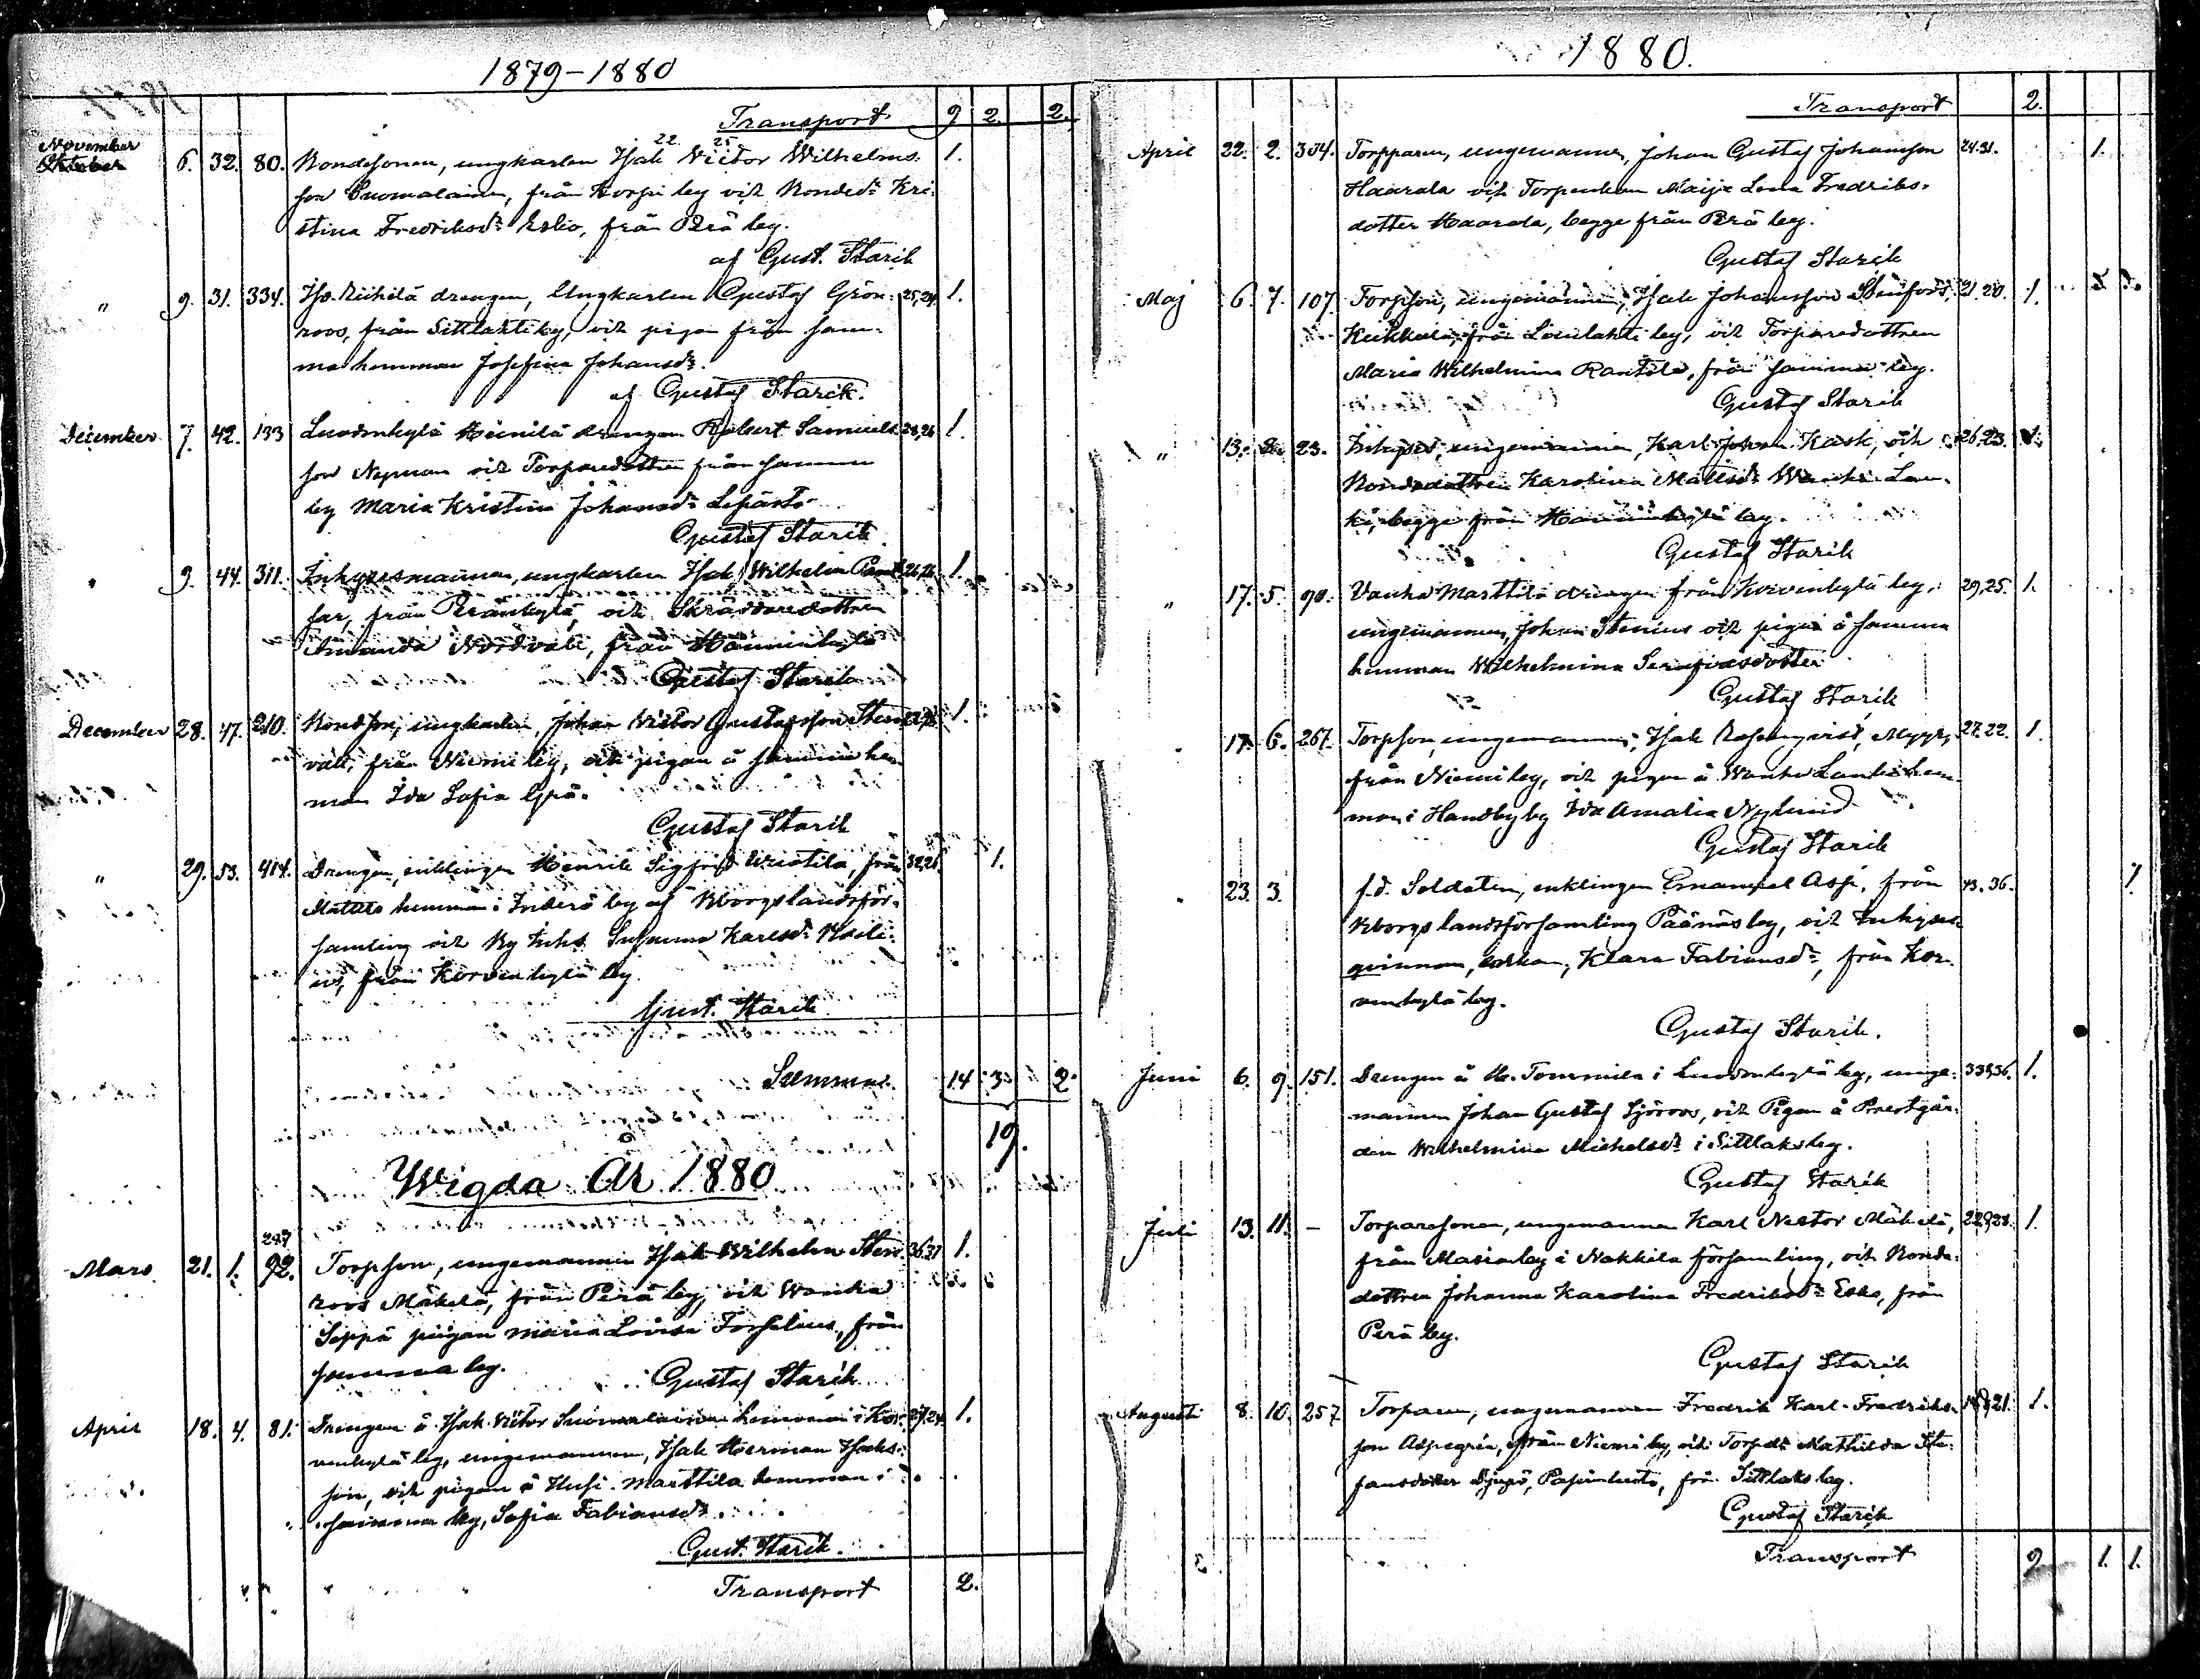 1879-1880
Transport 9 2. 2.
November
Oktober 6. 32. 80. Bondesonen, ungkarlen Isak Victor Wilhelms- 1.
22 25
son Suomalainen, från Korpi by vit Bonded:r Kri-
stina Fredriksd:r Esko, från Perä by.
af Gust. Starik
" 9. 31. 334. drengen, Ungkarlen Gustaf Grön- 25,24. 1.
roos, från Sittlahti by, vit pigan från sam-
ma hemman Josefina Johansd:r.
af Gustaf Starik.
December 7. 42. 133 drengen Robert Samuels- 1.
son Nyman vit Torparedottren från samma
by Maria Kristina Johansd:r Lepistö
Gustaf Starik.
" 9. 44. 311. Inhysesmannen, ungkarlen Isak Wilhelm 1.
far, från Peränkylä, vit Skräddaredottren
Amanda Nordvall, från Hanninkylä
Gustaf Starik
December 28. 47. 210. Bondson, ungkarlen, Johan Victor Gustafsson Sten- 1.
vall, från Niemi by, vit pigan å samma hem-
man Ida Sofia
Gustaf Starik
" 29. 53. 414. Drengen, enklingen Henrik Sigfrid från 32,26. 1.
hemman i Inderö by af Kborgs landsför-
samling vit Susanna Karlsd:r
från Korvenkylä by.
Gust. Starik
Summa. 14 3 2.
19.
Wigda År 1880
247
Mars 21. 1. 92. Torpson, ungemannen Isak Wilhelm Sten- 1.
roos Mäkelä, från Perä by, vit Wanha
Seppä pigan Maria Lovisa Forselius, från
samma by.
Gustaf Starik
April 18. 4. 81. Drengen å Isak Victor Suomalainen hemman i Kor- 27,24. 1.
venkylä by, ungemannen, Isak Herman Isaks-
son, vit pigan å Uusi Marttila hemman i
samma by, Sofia Fabiansd:r
Gust. Starik.
Transport 2.
1880.
Transport 2.
April 22. 2. 304. Torpparen, ungemannen, Johan Gustaf Johansson 24.31. 1.
Haarala vit Torpenkan Maija Lena Fredriks-
dotter Haarala, begge från Perä by.
Gustaf Starik
Maj 6. 7. 107. Torpson, ungemannen, Isak Johansson Stenfors, 21.20. 1.
från Lanlahti by, vit Torparedottren
Maria Wilhelmina Rantala, från samma by.
Gustaf Starik
" 13. 23. Inhyses, ungemannen, Karl Johan Kask, vit 26,23.
Bondedottren Karolina Mattsd:r Wanha Lau-
ki, begge från Hanninkylä by.
Gustaf Starik
" 17. 5. 90. Vanha Marttila drengen från Korvenkylä by, 29,25. 1.
ungemannen, Johan Stenius vit pigan å samma
hemman Wilhelmina Serafiasdotter
Gustaf Starik
" 17. 6. 267. Torpson, ungemannen, Isak Rosenqvist, Myyry, 27.22. 1.
från Niemi by, vit pigan å Wanha Lauki hem-
man i Handby by Ida Amalia Nylund
Gustaf Starik
" 23. 3. f.d. Soldaten, enklingen Emanuel Asp, från 43.36. 1.
Kborgs landsförsamling Päänäs by, vit Inhyses
qvinnan, enkan, Klara Fabiansd:r, från Kor-
venkylä by.
Gustaf Starik.
Juni 6. 9. 151. Drengen å Tommila i by, unge- 1.
mannen Johan Gustaf Sjöroos, vit Pigan å Prestgår-
den Wilhelmina Michelsd:r i Sittlaks by.
Gustaf Starik
Juli 13. 11. - Torparesonen, ungemannen Karl Nestor Mäkelä, 1.
från Masia by i Nakkila församling, vit Bonde-
dottren Johanna Karolina Fredriksd:r Esko, från
Perä by.
Gustaf Starik
Augusti 8. 10. 257 Torparen, ungemannen Fredrik Karl Fredriks- 1.
son Aspegrén, från Niemi by, vit Torpd:r Mathilda Ste-
fansdotter från Sittlaks by.
Gustaf Starik
Transport 9 1. 1.